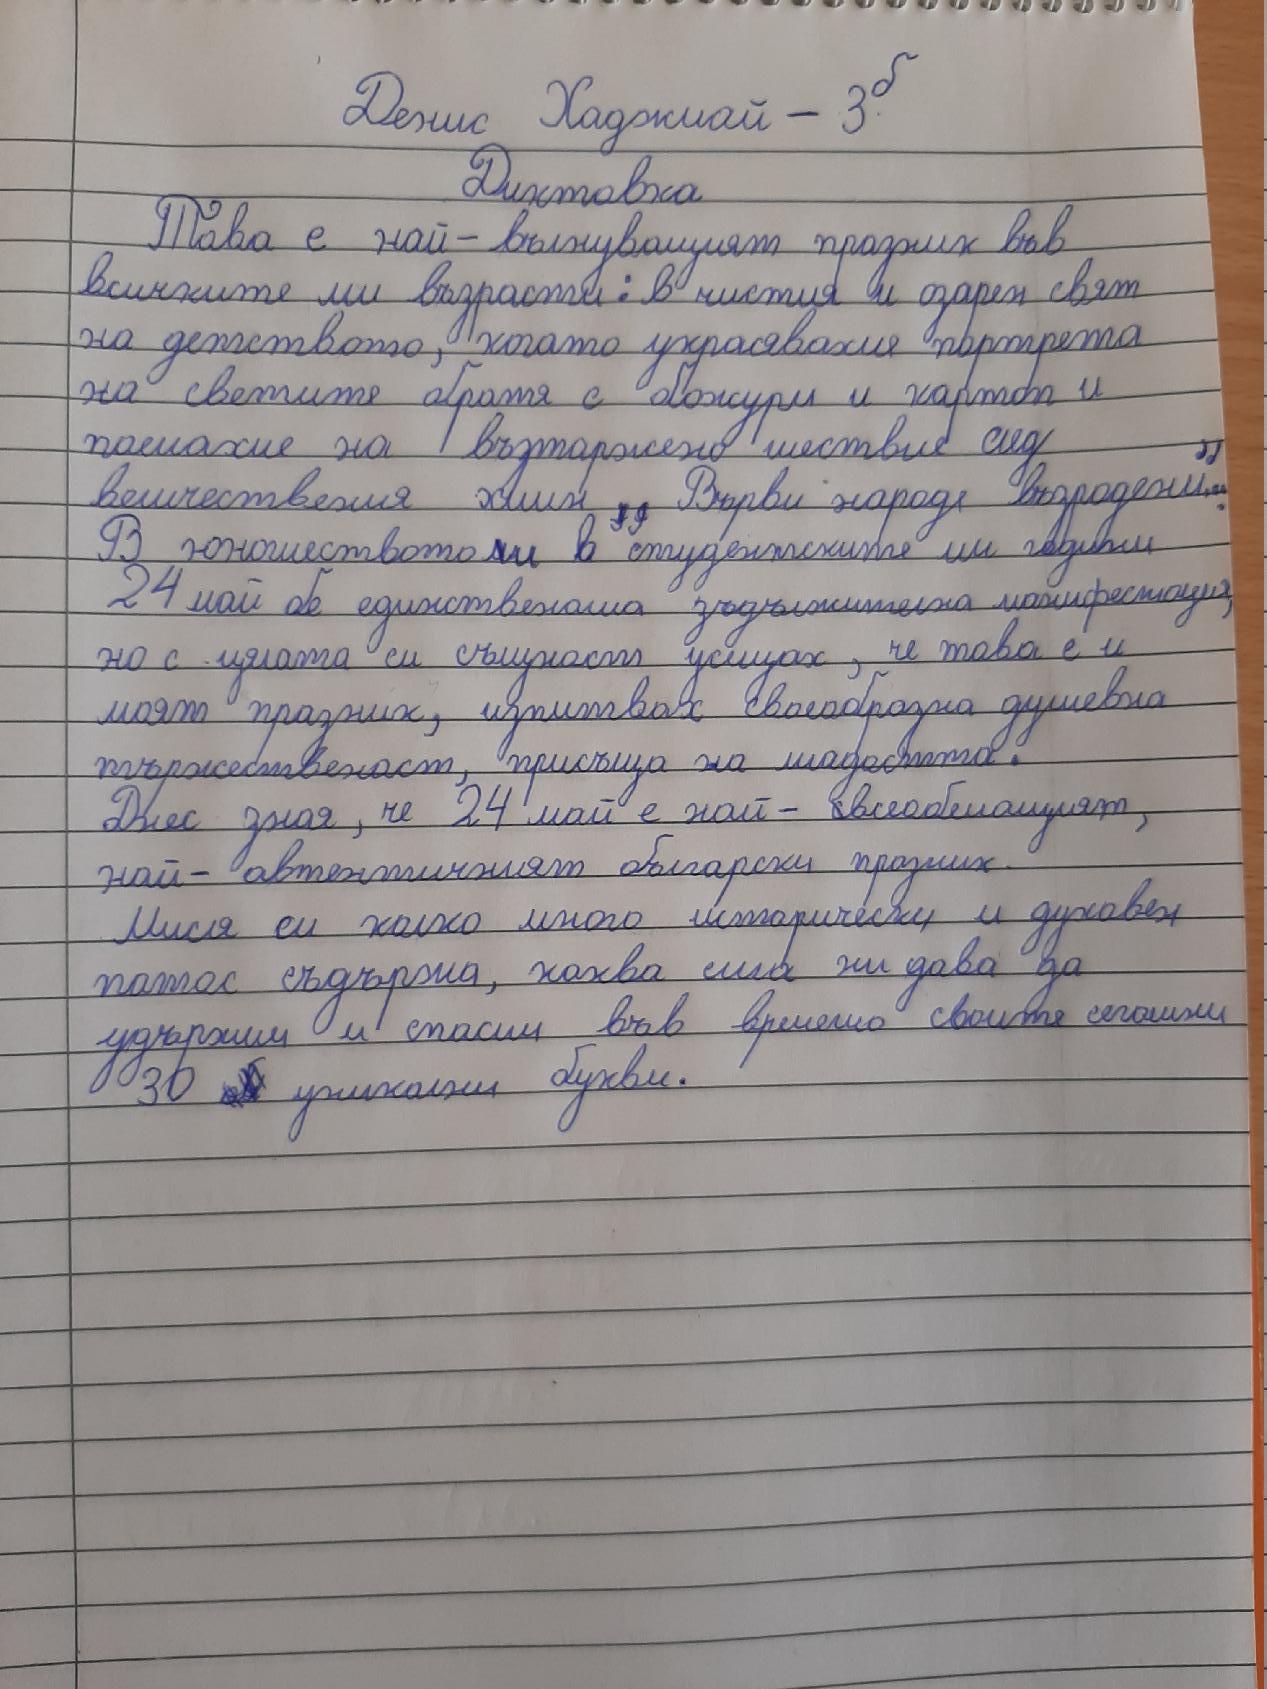 Денис Хаджиай - 3б
Диктовка
Това е най-вълнуващият празник във
всичките ми възрасти: в чистия и озарен свят
на детството, когато украсявахме портрета
на светите братя с божури и картон и
поемахме на възтаржено шествие след
величествения химн „Върви народе възродени..."
В юношеството ми в студентските ми години
24 май бе единствената задължителна манифестация,
но с цялата си същност усещах, че това е и
моят празник, изпитвах своеобразна душевна
тържественост, присъща на младостта.
Днес зная, че 24 май е най-всеобемащият,
най-автентичният български празник.
Мисля си колко много исторически и духовен
патос съдържа, каква сила ни дава да
удържим и спасим във времето своите сегашни
30 уникални букви.